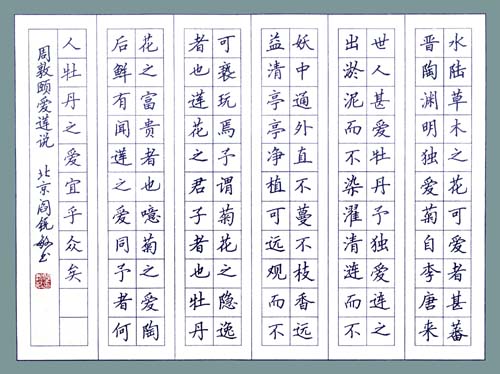 水陆草木之花可爱者甚蕃
晋陶渊明独爱菊自李唐来
世人甚爱牡丹予独爱莲之
出淤泥而不染濯清涟而不
妖中通外直不蔓不枝香远
益清亭亭净植可远观而不
可亵玩焉予谓菊花之隐逸
者也莲花之君子者也牡丹
花之富贵者也噫菊之爱陶
后鲜有闻莲之爱同予者何
人牡丹之爱宜乎众矣
周敦颐爱莲说 北京阎锐敏书